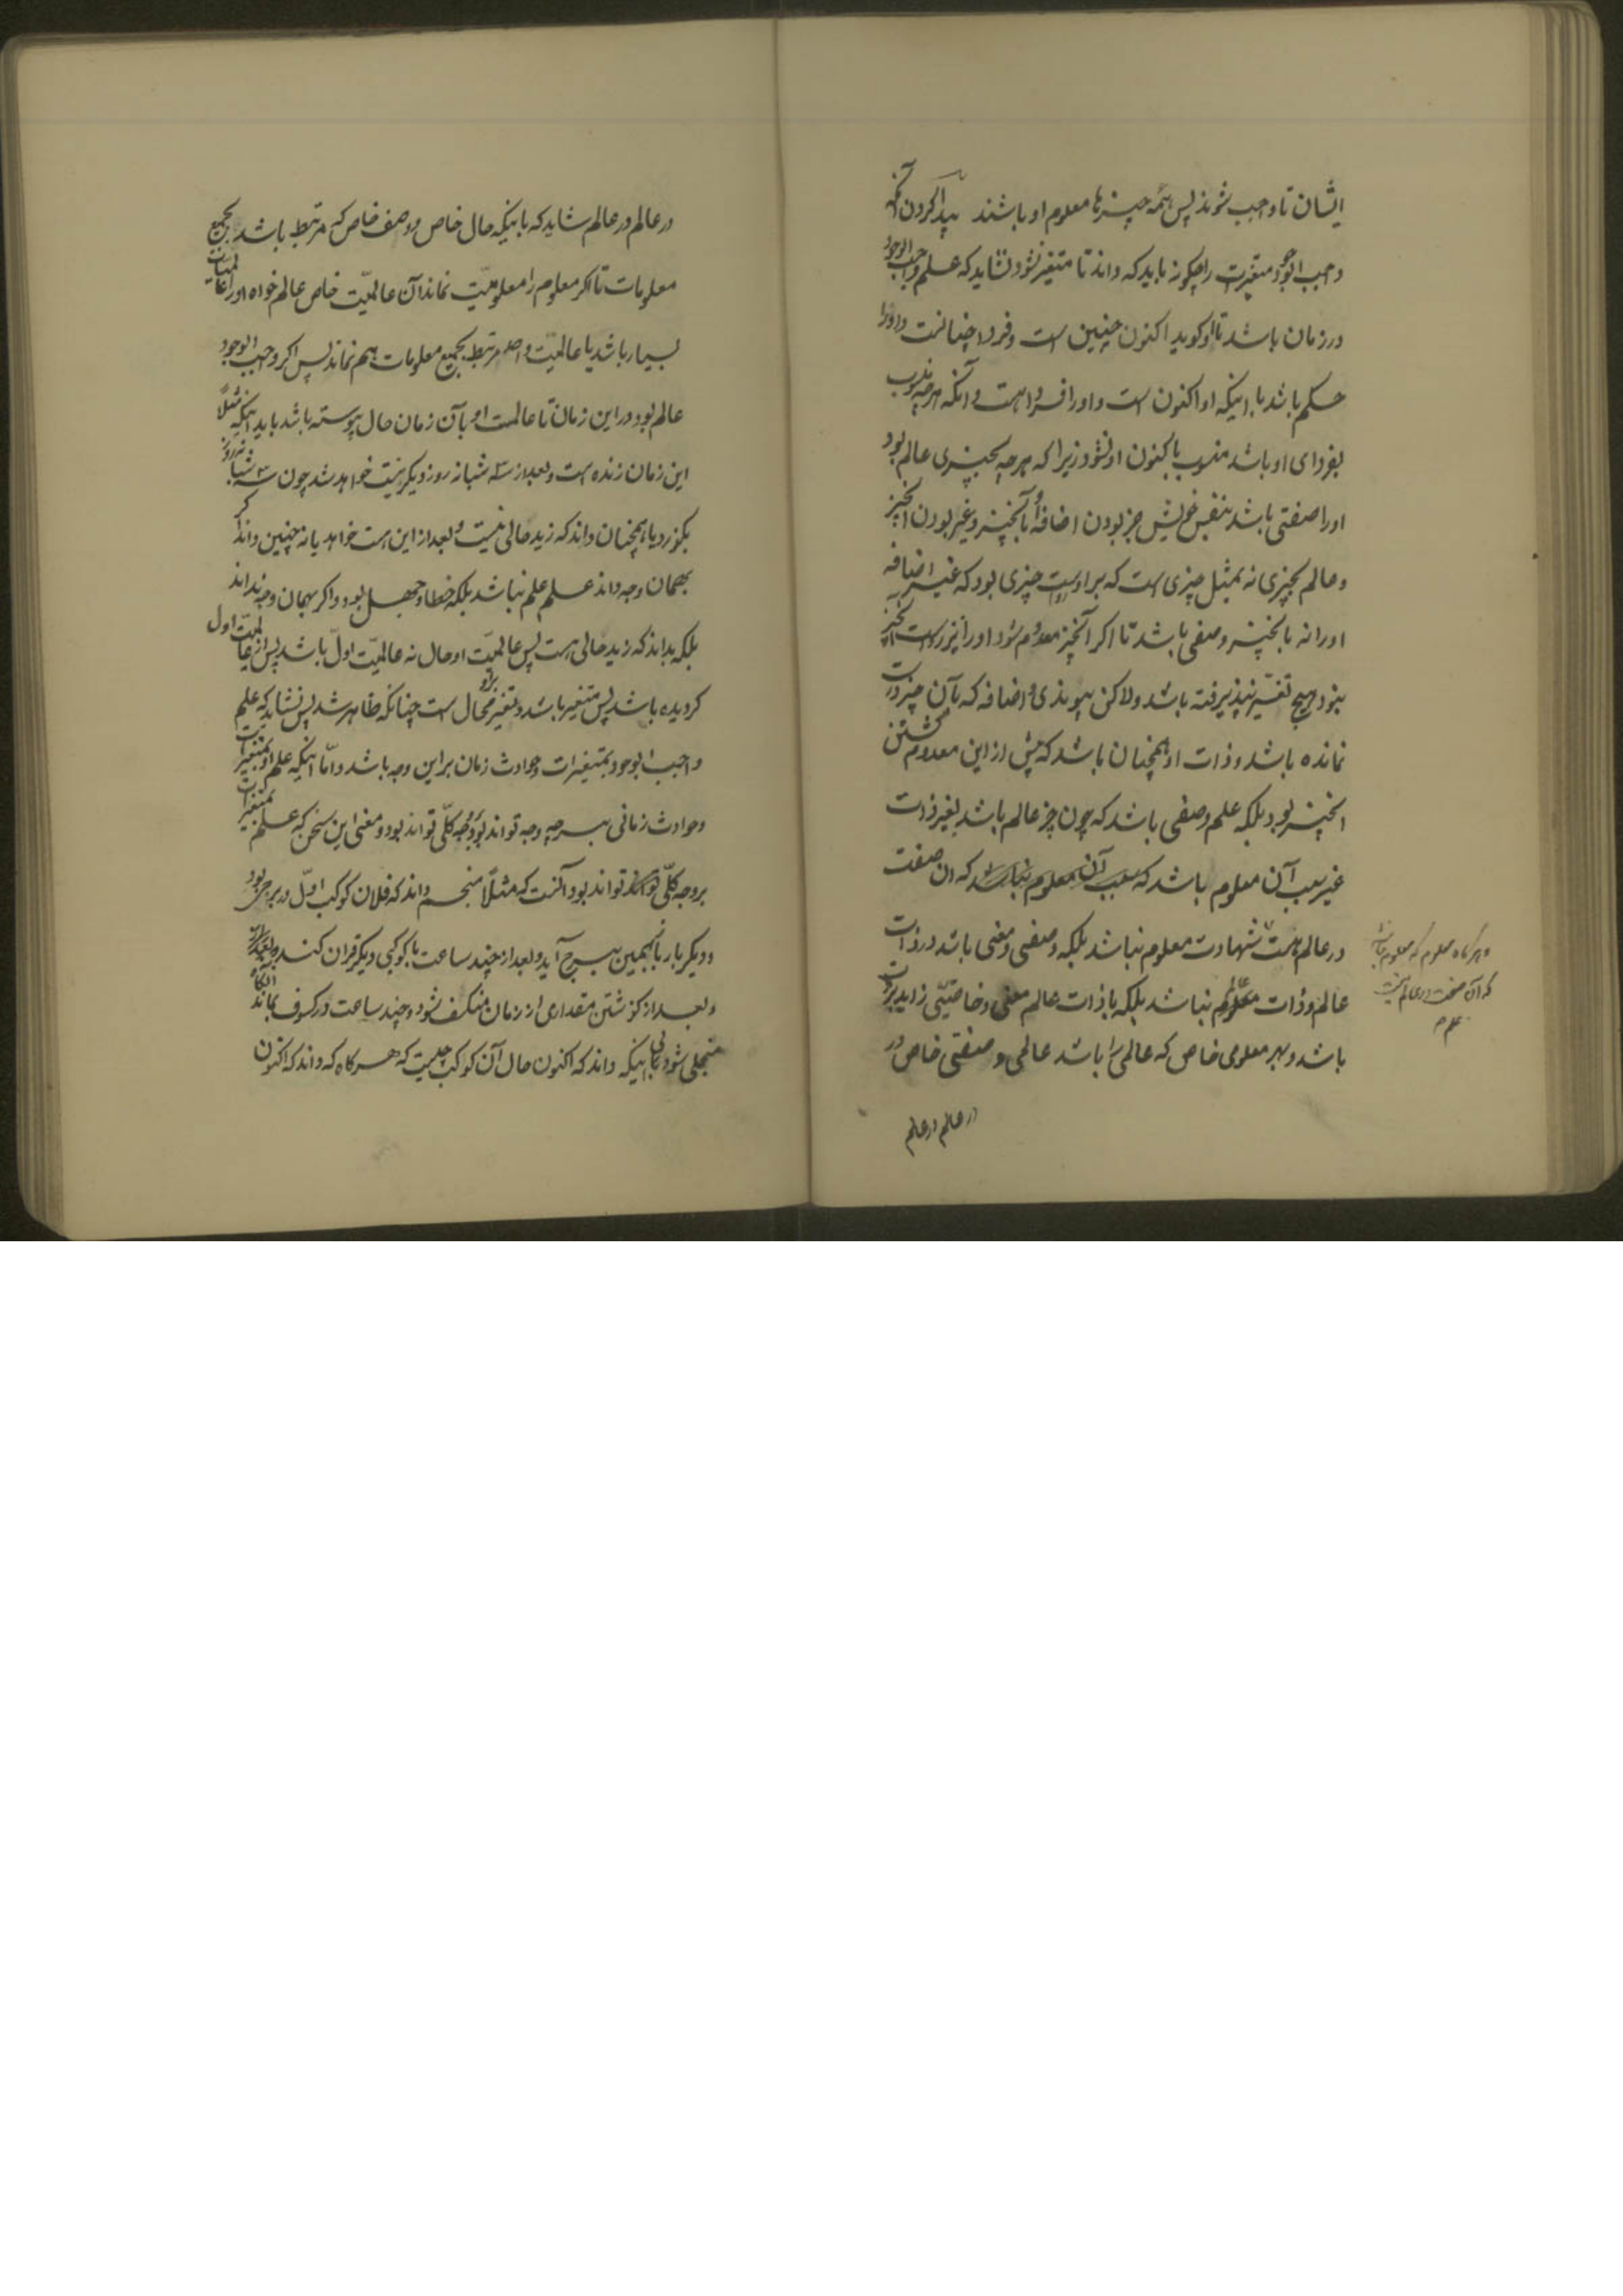 ایشان تا واجب شوند پس همه چیزها معلوم او باشند پیدا کردن آنکه
واجب الوجود متغیرات را چگونه باید که داند تا متغیر نشود نشاید که علم واجب الوجود
در زمان باشد تا او گوید اکنون چنین است و فردا چنانست و او را
حکم باشد با اینکه او اکنون است و او را فردا هست و آنکه هرچه منسوب
بفردای او باشد منسوب باکنون او نشود زیرا که هرچه بچیزی عالم بود
او را صفتی باشد بنفس خویش جز بودن اضافهٔ او بآنچیز و غیر بودن آنچیز
و عالم بچیزی نه بمثل چیزی است که بر راست چیزی بود که غیر اضافه
او را نه بآنچیز وصفی باشد تا اگر آنچیز معدوم شود او را نیز راست آنچیز
بنود و هیچ تغیّر نپذیرفته باشد ولاکن پیوندی و اضافه که بآن چیز داشت
نمانده باشد و ذات او همچنان باشد که پیش از این معدوم گشتن
آنچیز بود بلکه علم وصفی باشد که چون چیز عالم باشد بغیر ذات
غیر سبب آن معلوم باشد که سبب آن معلوم نباشد که ان صفت
در عالم هست شهادت معلوم نباشد بلکه وصفی و معنی باشد در ذات
عالم و ذات معلوم نباشد بلکه با ذات عالم معنی و خاصیّتی زاید بر ذات
باشد و بهر معلومی خاص که عالمی را باشد عالمی و صفتی خاص در
در عالم در عالم
و هرگاه معلوم که معلوم نباشد
که آن صفت در عالم نیست
در عالم در عالم شاید که با اینکه حال خاص و وصف خاص که مرتبط باشد بجمیع
معلومات تا اگر معلوم را معلومیّت نماند آن عالمیّت خاص عالم خواه او را عالمیات
بسیار باشد یا عالمیّت واحد مرتبط بجمیع معلومات هم نماند پس اگر واجب الوجود
عالم بود در این زمان تا عالمیت او بآن زمان حال پیوسته باشد باید اینکه مثلاً
این زمان زنده است و بعد از سه شبانه روز دیگر نیست خواهد شد چون سه شبانه روز
بگذرد یا همچنان داند که زید حالی نیست و بعد از این هست خواهد یا نه چنین داند اگر
بهمان وجه داند علم علم نباشد بلکه خطا و جهل بود و اگر بهمان وجه نداند
بلکه بداند که زید حالی هست پس عالمیّت او حال نه عالمیّت اوّل باشد پس از عالمیّت اول
گردیده باشد پس متغیر باشد و تغیر بر او محال است چنانکه ظاهر شد پس نشاید که علم
واجب الوجود بمتغیرات و حوادث زمان بر این وجه باشد و امّا اینکه علم او بمتغیرات
و حوادث زمانی بر چه وجه تواند بود بوجه کلّی تواند بود و معنی این سخن که علم بمتغیرات
بر وجه کلّی تواند بود آنست که مثلاً منجم داند که فلان کوکب اوّل در برجی بود
و دیگر بار باهمین برج آید و بعد از چند ساعت با کوکبی دیگر قران کند و بعد از ان
و بعد از گذشتن مقداری از زمان منکسف شود و چند ساعت در کسوف بماند انگاه
منجلی شود بی اینکه داند که اکنون حال آن کوکب چیست که هر گاه که داند که اکنون